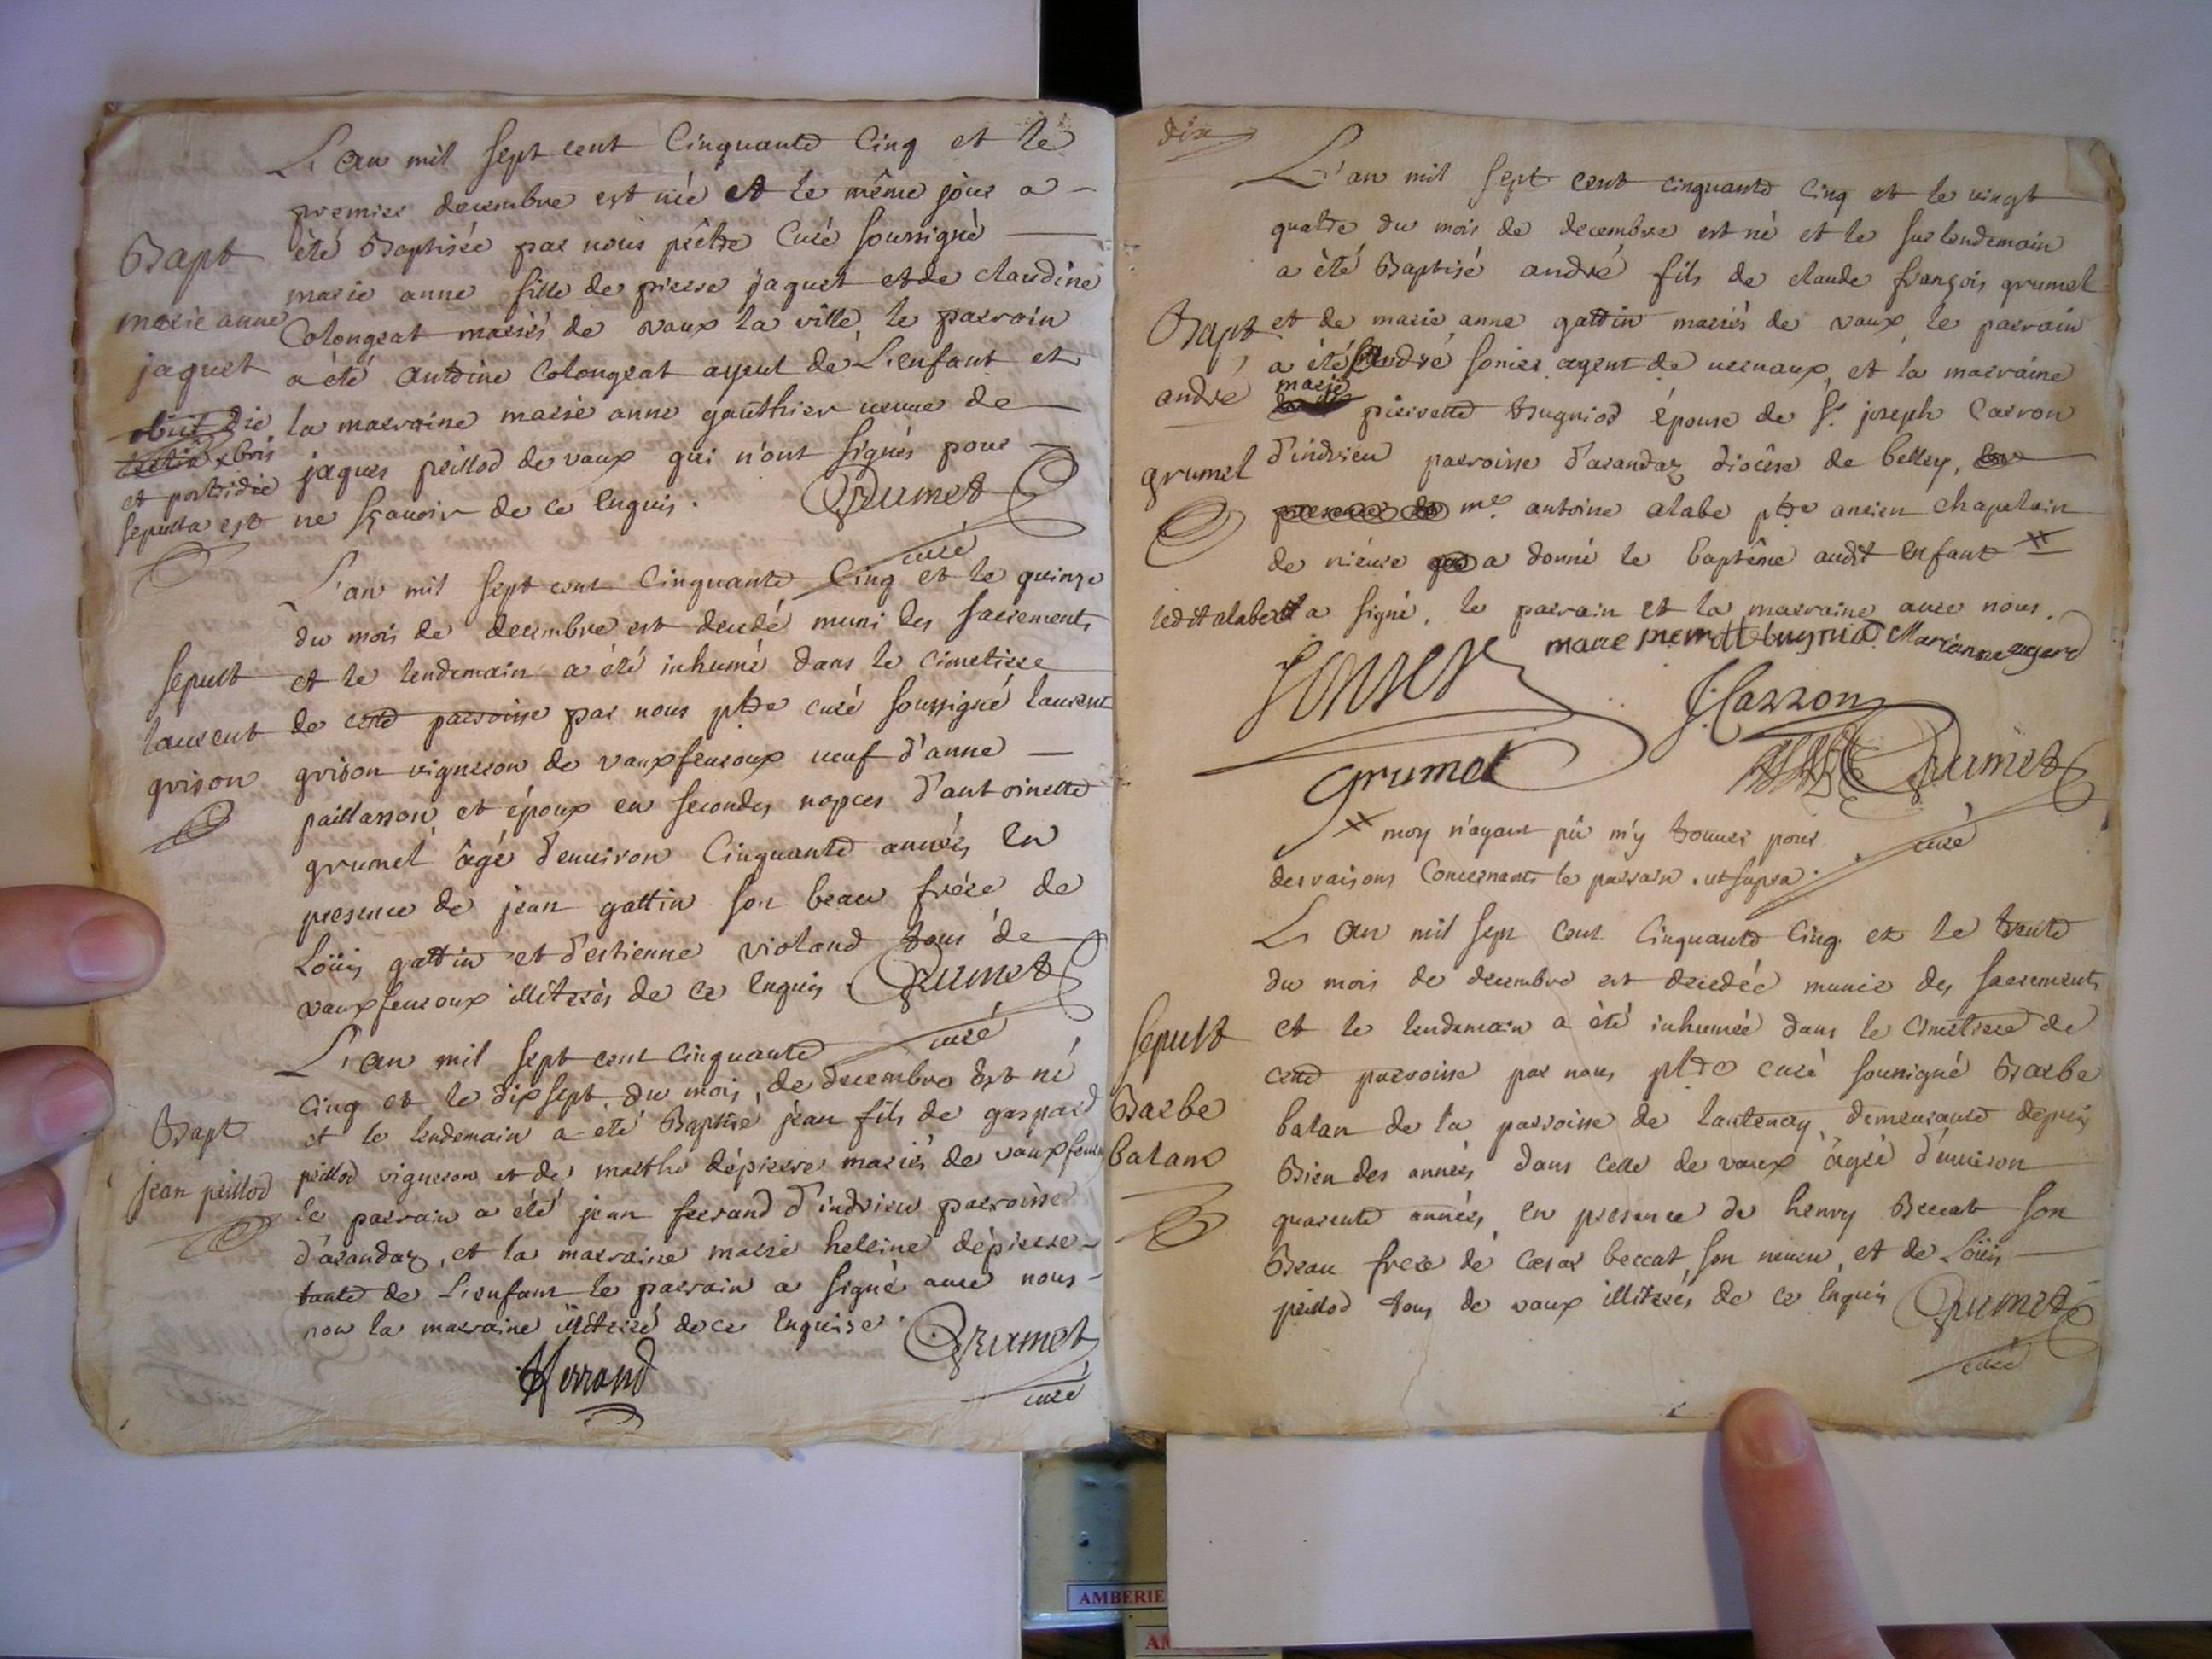 L'an mil sept cent Cinquante Cinq et le
premier decembre est née et le même jour a
été Baptisée par nous prêtre Curé soussigné
marie anne fille de pierre jaquet et de claudine
Colongeat mariés de vaux la ville, le parrain
a été antoine Colongeat ayeul de L'enfant et
la marraine marie anne gauthier veuve de
jaques peillod de vaux qui n'ont signés pour
ne sçavoir de ce Enquis. Grumet
curé
Bapt
marie anne
jaquet
obiit die
xbris
et postridie
sepulta est
L'an mil sept cent Cinquante Cinq et le quinze
du mois de decembre est decedé muni des sacrements
et le lendemain a été inhumé dans le cimetiere
de cette parroisse par nous ptre curé soussigné laurent
grison vigneron de vauxfevroux veuf d'anne
paillasson et époux en secondes nopces d'antoinette
grumet âgé d'environ Cinquante années, En
presence de jean gattin son beau frére de
Loüis gattin et d'estienne violand tous de
vauxfevroux illiterés de ce Enquis Grumet
curé
sepult
laurent
grison
L'an mil sept cent Cinquante
Cinq et le dix sept du mois de decembre est né
et le lendemain a été Baptisé jean fils de gaspard
peillod vigneron et de marthe dépierre mariés de vauxfevroux
le parrain a été jean ferrand d'indrieu parroisse
d'arandaz, et la marraine marie helline dépierre
tante de L'enfant le parrain a signé avec nous
non la marraine illiterée de ce Enquise. Grumet
ferrand
curé
Bapt
jean peillod
dix
L'an mil sept cent cinquante Cinq et le vingt
quatre du mois de decembre est né et le surlendemain
a été Baptisé andré fils de claude françois grumet
et de marie anne gattin mariés de vaux, le parrain
a été andré sonier agent de vernaux, et la marraine
marie
pierrette Bugniod Épouse de Sr. joseph Carron
d'indrieu parroisse d'arandaz diocêse de belley,
presence de mre antoine alabe ptre ancien chapelain
de rieuse a donné le Baptême audit Enfant #
ledit alabe et a signé, le parrain et la marraine avec nous.
marie pierrette bugniod Marianne
Sonier
J Carron
grumet
Grumet
curé
# moy n'ayant pû m'y trouver pour
des raisons Concernants le parrain. ut supra.
Bapt
andré
grumet
L'an mil sept Cent Cinquante Cinq et le trente
du mois de decembre est decedée munie des sacrements
et le lendemain a été inhumée dans le Cimetiere de
cette parroisse par nous ptre curé soussigné Barbe
balan de la parroisse de lantenay, demeurante depuis
Bien des années dans Celle de vaux âgée d'environ
quarente années, En presence de henry Beccat son
Beau frere de Cesar beccat, son neveu, et de Loüis
peillod tous de vaux illiterés de ce Enquis Grumet
curé
sepult
Barbe
balan
AMBERIE